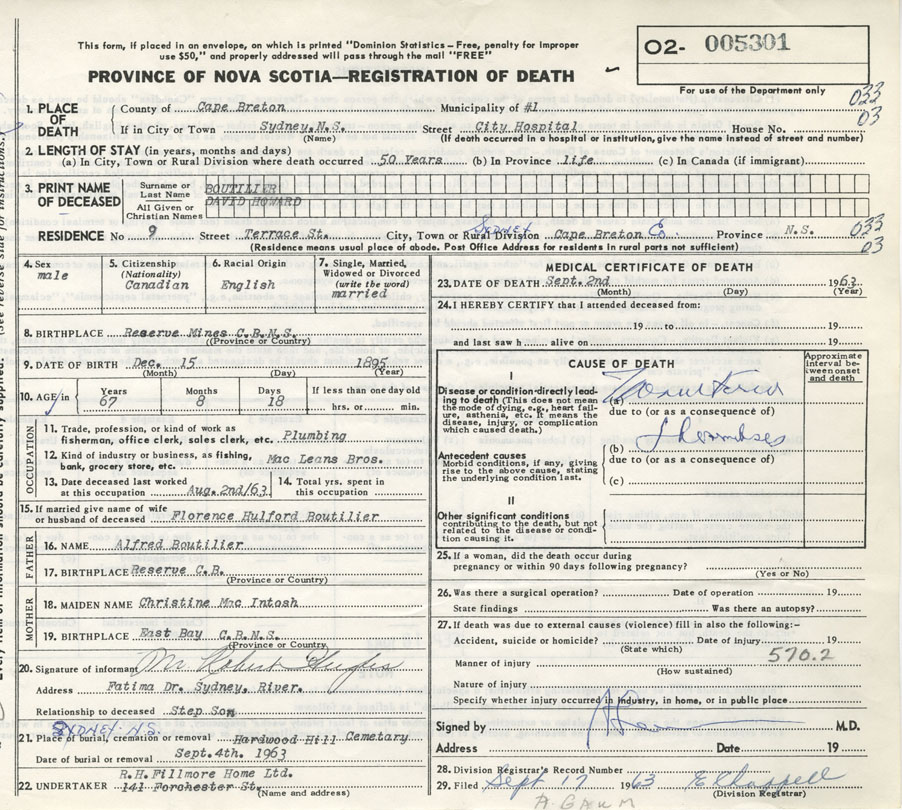 This form, if placed in an envelope, on which is printed "Dominion Statistics – Free, penalty for improper
use $50," and properly addressed will pass through the mail "FREE"
PROVINCE OF NOVA SCOTIA—REGISTRATION OF DEATH
O2- 005301
For use of the Department only
033
03
1. PLACE OF DEATH
County of Cape Breton Municipality of #1
If in City or Town Sydney, N.S. Street City Hospital House No.
(Name) (If death occurred in a hospital or institution, give the name instead of street and number)
2. LENGTH OF STAY (in years, months and days)
(a) In City, Town or Rural Division where death occurred 50 Years (b) In Province life (c) In Canada (if immigrant)
3. PRINT NAME OF DECEASED
Surname or Last Name BOUTILIER
All Given or Christian Names DAVID HOWARD
RESIDENCE No 9 Street Terrace St. City, Town or Rural Division Sydney Cape Breton Co. Province N.S.
033
03
(Residence means usual place of abode. Post Office Address for residents in rural parts not sufficient)
4. Sex
male
5. Citizenship
(Nationality)
Canadian
6. Racial Origin
English
7. Single, Married, Widowed or Divorced
(write the word)
married
8. BIRTHPLACE Reserve Mines C.B.N.S.
(Province or Country)
9. DATE OF BIRTH Dec. 15 1895
(Month) (Day) (Year)
10. AGE in
Years Months Days If less than one day old
67 8 18 hrs. or min.
OCCUPATION
11. Trade, profession, or kind of work as
fisherman, office clerk, sales clerk, etc. Plumbing
12. Kind of industry or business, as fishing,
bank, grocery store, etc. Mac Leans Bros.
13. Date deceased last worked
at this occupation Aug. 2nd/63
14. Total yrs. spent in
this occupation
15. If married give name of wife
or husband of deceased Florence Hulford Boutilier
FATHER
16. NAME Alfred Boutilier
17. BIRTHPLACE Reserve C.B.
(Province or Country)
MOTHER
18. MAIDEN NAME Christine Mac Intosh
19. BIRTHPLACE East Bay C.B.N.S.
(Province or Country)
20. Signature of informant
Address Fatima Dr. Sydney, River.
Relationship to deceased Step Son
SYDNEY N.S.
21. Place of burial, cremation or removal Hardwood Hill Cemetary
Date of burial or removal Sept. 4th. 1963
22. UNDERTAKER R.H. Fillmore Home Ltd.
141 Forchester St.
(Name and address)
MEDICAL CERTIFICATE OF DEATH
23. DATE OF DEATH Sept. 2nd 1963
(Month) (Day) (Year)
24. I HEREBY CERTIFY that I attended deceased from:
19 to 19
and last saw h alive on 19
CAUSE OF DEATH
Approximate interval between onset and death
I
Disease or condition directly leading to death (This does not mean the mode of dying, e.g., heart failure, asthenia, etc. It means the disease, injury, or complication which caused death.)
(a)
due to (or as a consequence of)
Antecedent causes
Morbid conditions, if any, giving rise to the above cause, stating the underlying condition last.
(b) Thromboses
due to (or as a consequence of)
(c)
II
Other significant conditions
contributing to the death, but not related to the disease or condition causing it.
25. If a woman, did the death occur during
pregnancy or within 90 days following pregnancy?
(Yes or No)
26. Was there a surgical operation? Date of operation 19
State findings Was there an autopsy?
27. If death was due to external causes (violence) fill in also the following:-
Accident, suicide or homicide? Date of injury 19
(State which)
570.2
Manner of injury
(How sustained)
Nature of injury
Specify whether injury occurred in industry, in home, or in public place
Signed by M.D.
Address Date 19
28. Division Registrar's Record Number
29. Filed Sept 17 1963
(Division Registrar)